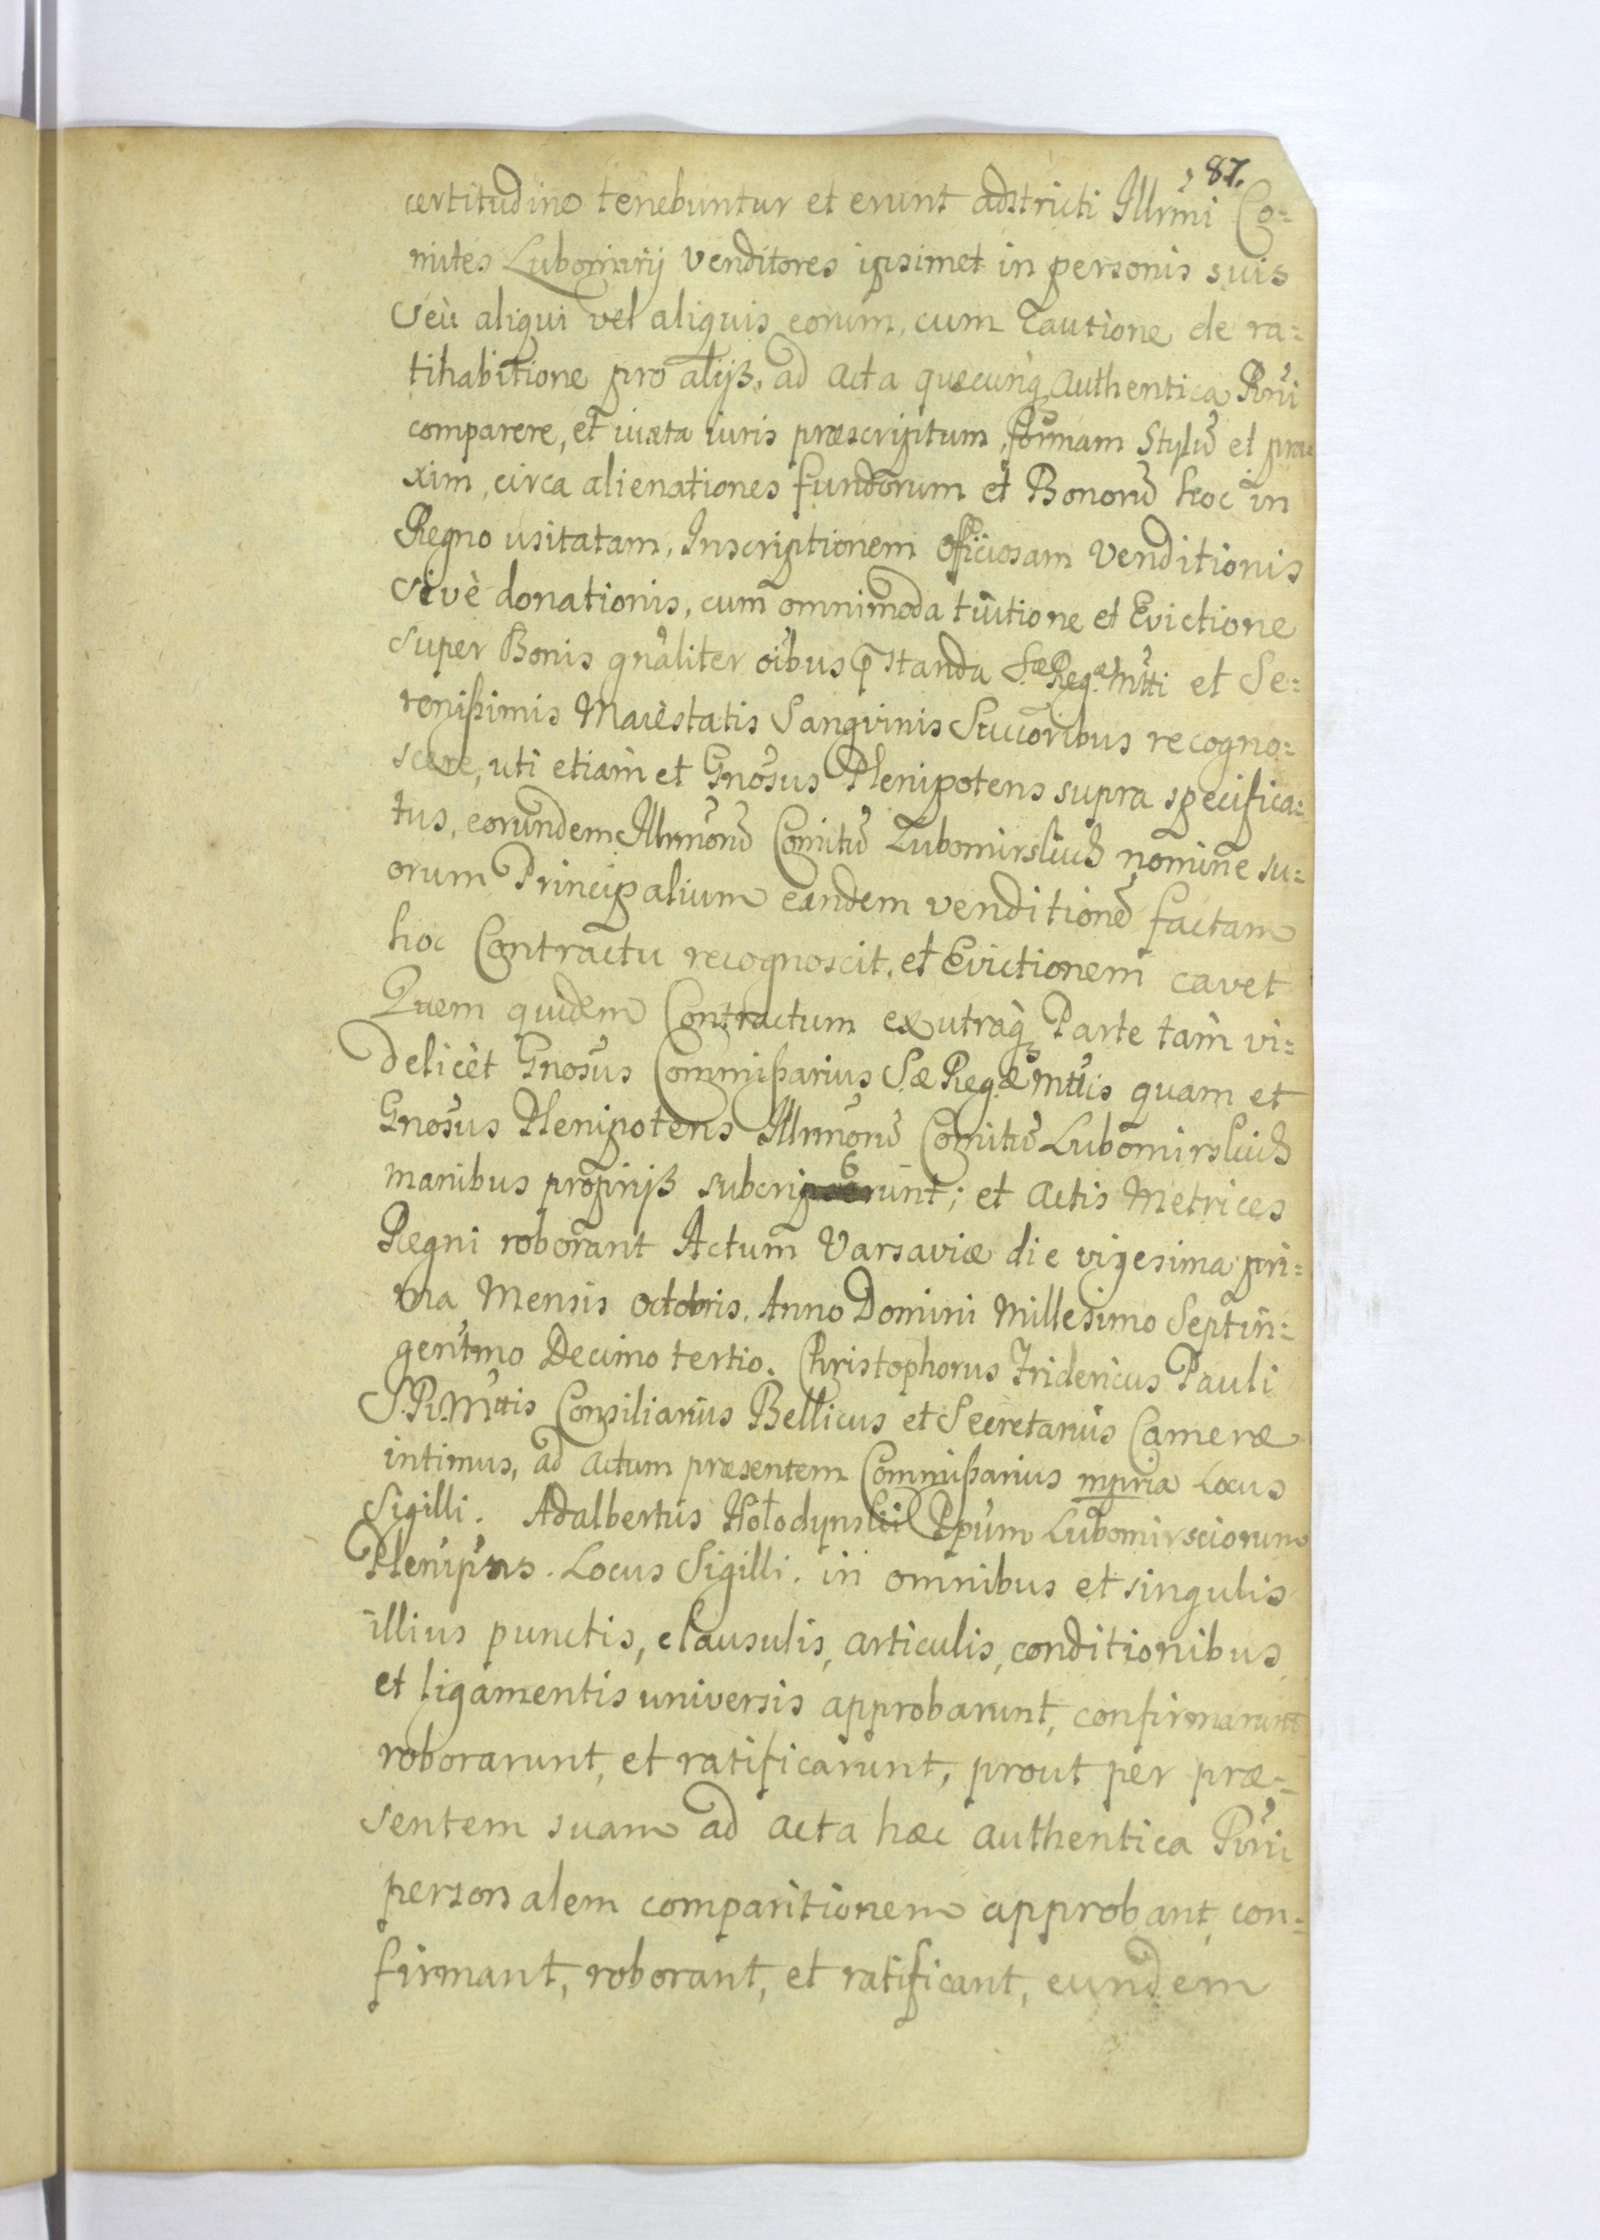 87.
certitudine tenebuntur et erunt adstricti Illrmi Co=
mites Lubomirij Venditores ipsimet in personis suis
seù aliqui vel aliquis eorum, cum Cautione de ra=
tihabitione pro alijs, ad Acta quæcunq authentica Rni
comparere, et iuxta iuris præscriptum, formam Stylũ et pra=
xim, circa alienationes fundorum et Bonorũ hoc in
Regno usitatam, Inscriptionem officiosam Venditionis
sivè donationis, cum omnimoda tuitione et Evictione
super Bonis gnaliter oibus pstanda Sæ Regæ Mtti et Se=
renißimis Maiestatis Sangvinis Succoribus recogno=
scere, uti etiam et Gnosus Plenipotens supra specifica=
tus, eorundem Illrmorũ Comitũ Lubomirskich nomine su=
orum Principalium eandem venditionẽ factam
hoc Contractu recognoscit, et Evictionem cavet
Quem quidem Contractum ex utraq Parte tam vi=
delicèt Gnosus Commißarius Sæ Regæ Mttis quam et
Gnosus Plenipotens Illrmorũ Comitũ Lubomirskich
manibus proprijs subcripserunt; et Actis Metrices
Regni roborant Actum Varsaviæ die vigesima pri=
ma Mensis Octobris. Anno Domini Millesimo Septin=
gentmo Decimo tertio. Christophorus Fridericus Pauli
S.R.Mttis Consiliarius Bellicus et Secretarius Cameræ
intimus, ad actum præsentem Commißarius mpria Locus
Sigilli. Adalbertus Hołodynskii Ppum Lubomirsciorum
Plenipns. Locus Sigilli. in omnibus et singulis
illius punctis, clausulis, articulis, conditionibus,
et ligamentis universis approbarunt, confirmarunt
roborarunt, et ratificarunt, prout per præ=
sentem suam ad acta hæc authentica Rni
personalem comparitionem approbant, con=
firmant, roborant, et ratificant, eundem